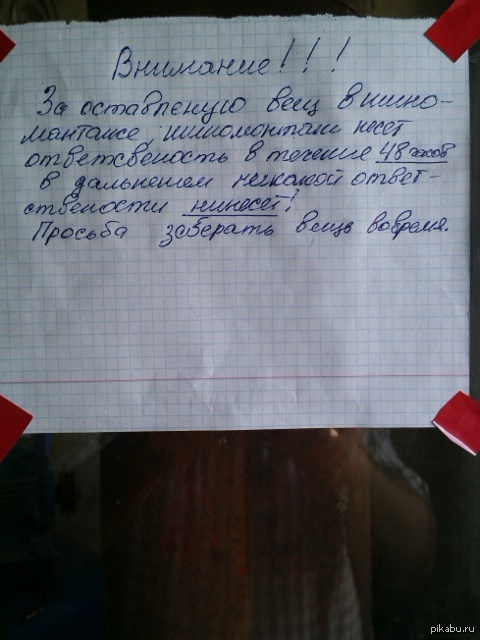 Внимание!!!
За оставленую вещ в шино-
мантажсе, шиномонтаж несет
ответсвеность в течение 48 часов
в дальнешем некакой ответ-
ствености нинесет!
Просьба заберать вещь вовремя.
pikabu.ru